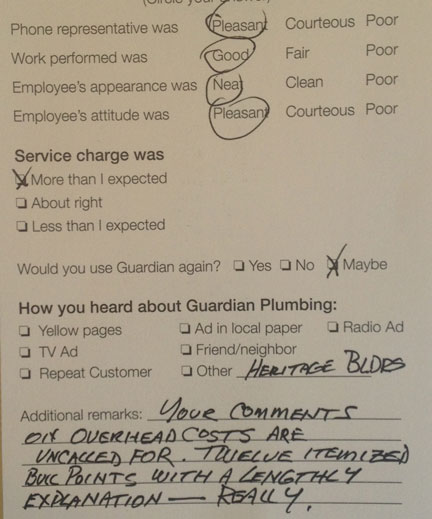 (Circle your answer)
Phone representative was Pleasant Courteous Poor
Work performed was Good Fair Poor
Employee's appearance was Neat Clean Poor
Employee's attitude was Pleasant Courteous Poor
Service charge was
More than I expected
About right
Less than I expected
Would you use Guardian again? Yes No Maybe
How you heard about Guardian Plumbing:
Yellow pages Ad in local paper Radio Ad
TV Ad Friend/neighbor
Repeat Customer Other HERITAGE BLDRS
Additional remarks: YOUR COMMENTS
ON OVERHEAD COSTS ARE
UNCALLED FOR. TWELVE ITEMIZED
BULL POINTS WITH A LENGTHLY
EXPLANATION — REALLY.